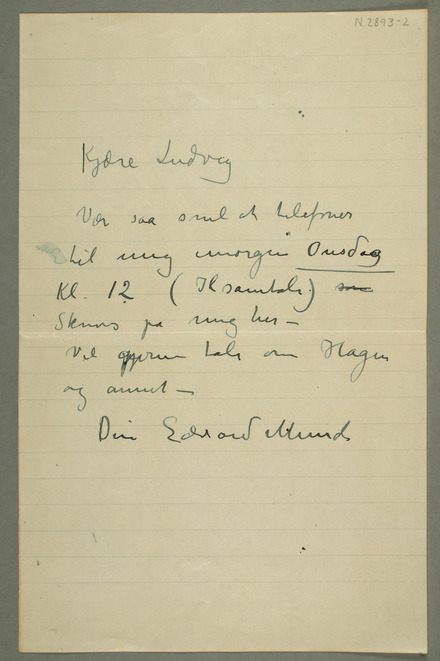 N 2893-2
Kjære Ludvig
Vær saa snil at telefoner
til mig imorgen Onsdag
Kl. 12 (Il samtale)
Skrives paa mig her –
Vil gjerne tale om Hagen
og annet –
Din Edvard Munch